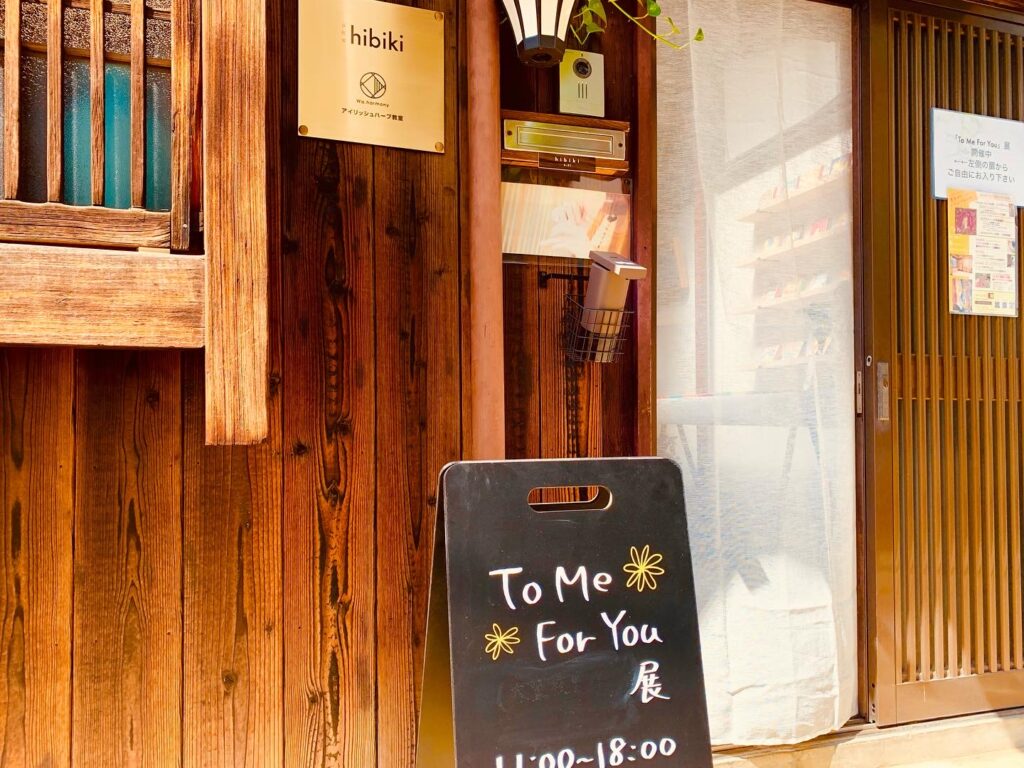 hibiki
Wa harmony
アイリッシュハープ教室
hibiki
「To Me For You」展
開催中
左側の扉から
ご自由にお入り下さい
To Me
For You
展
11:00~18:00